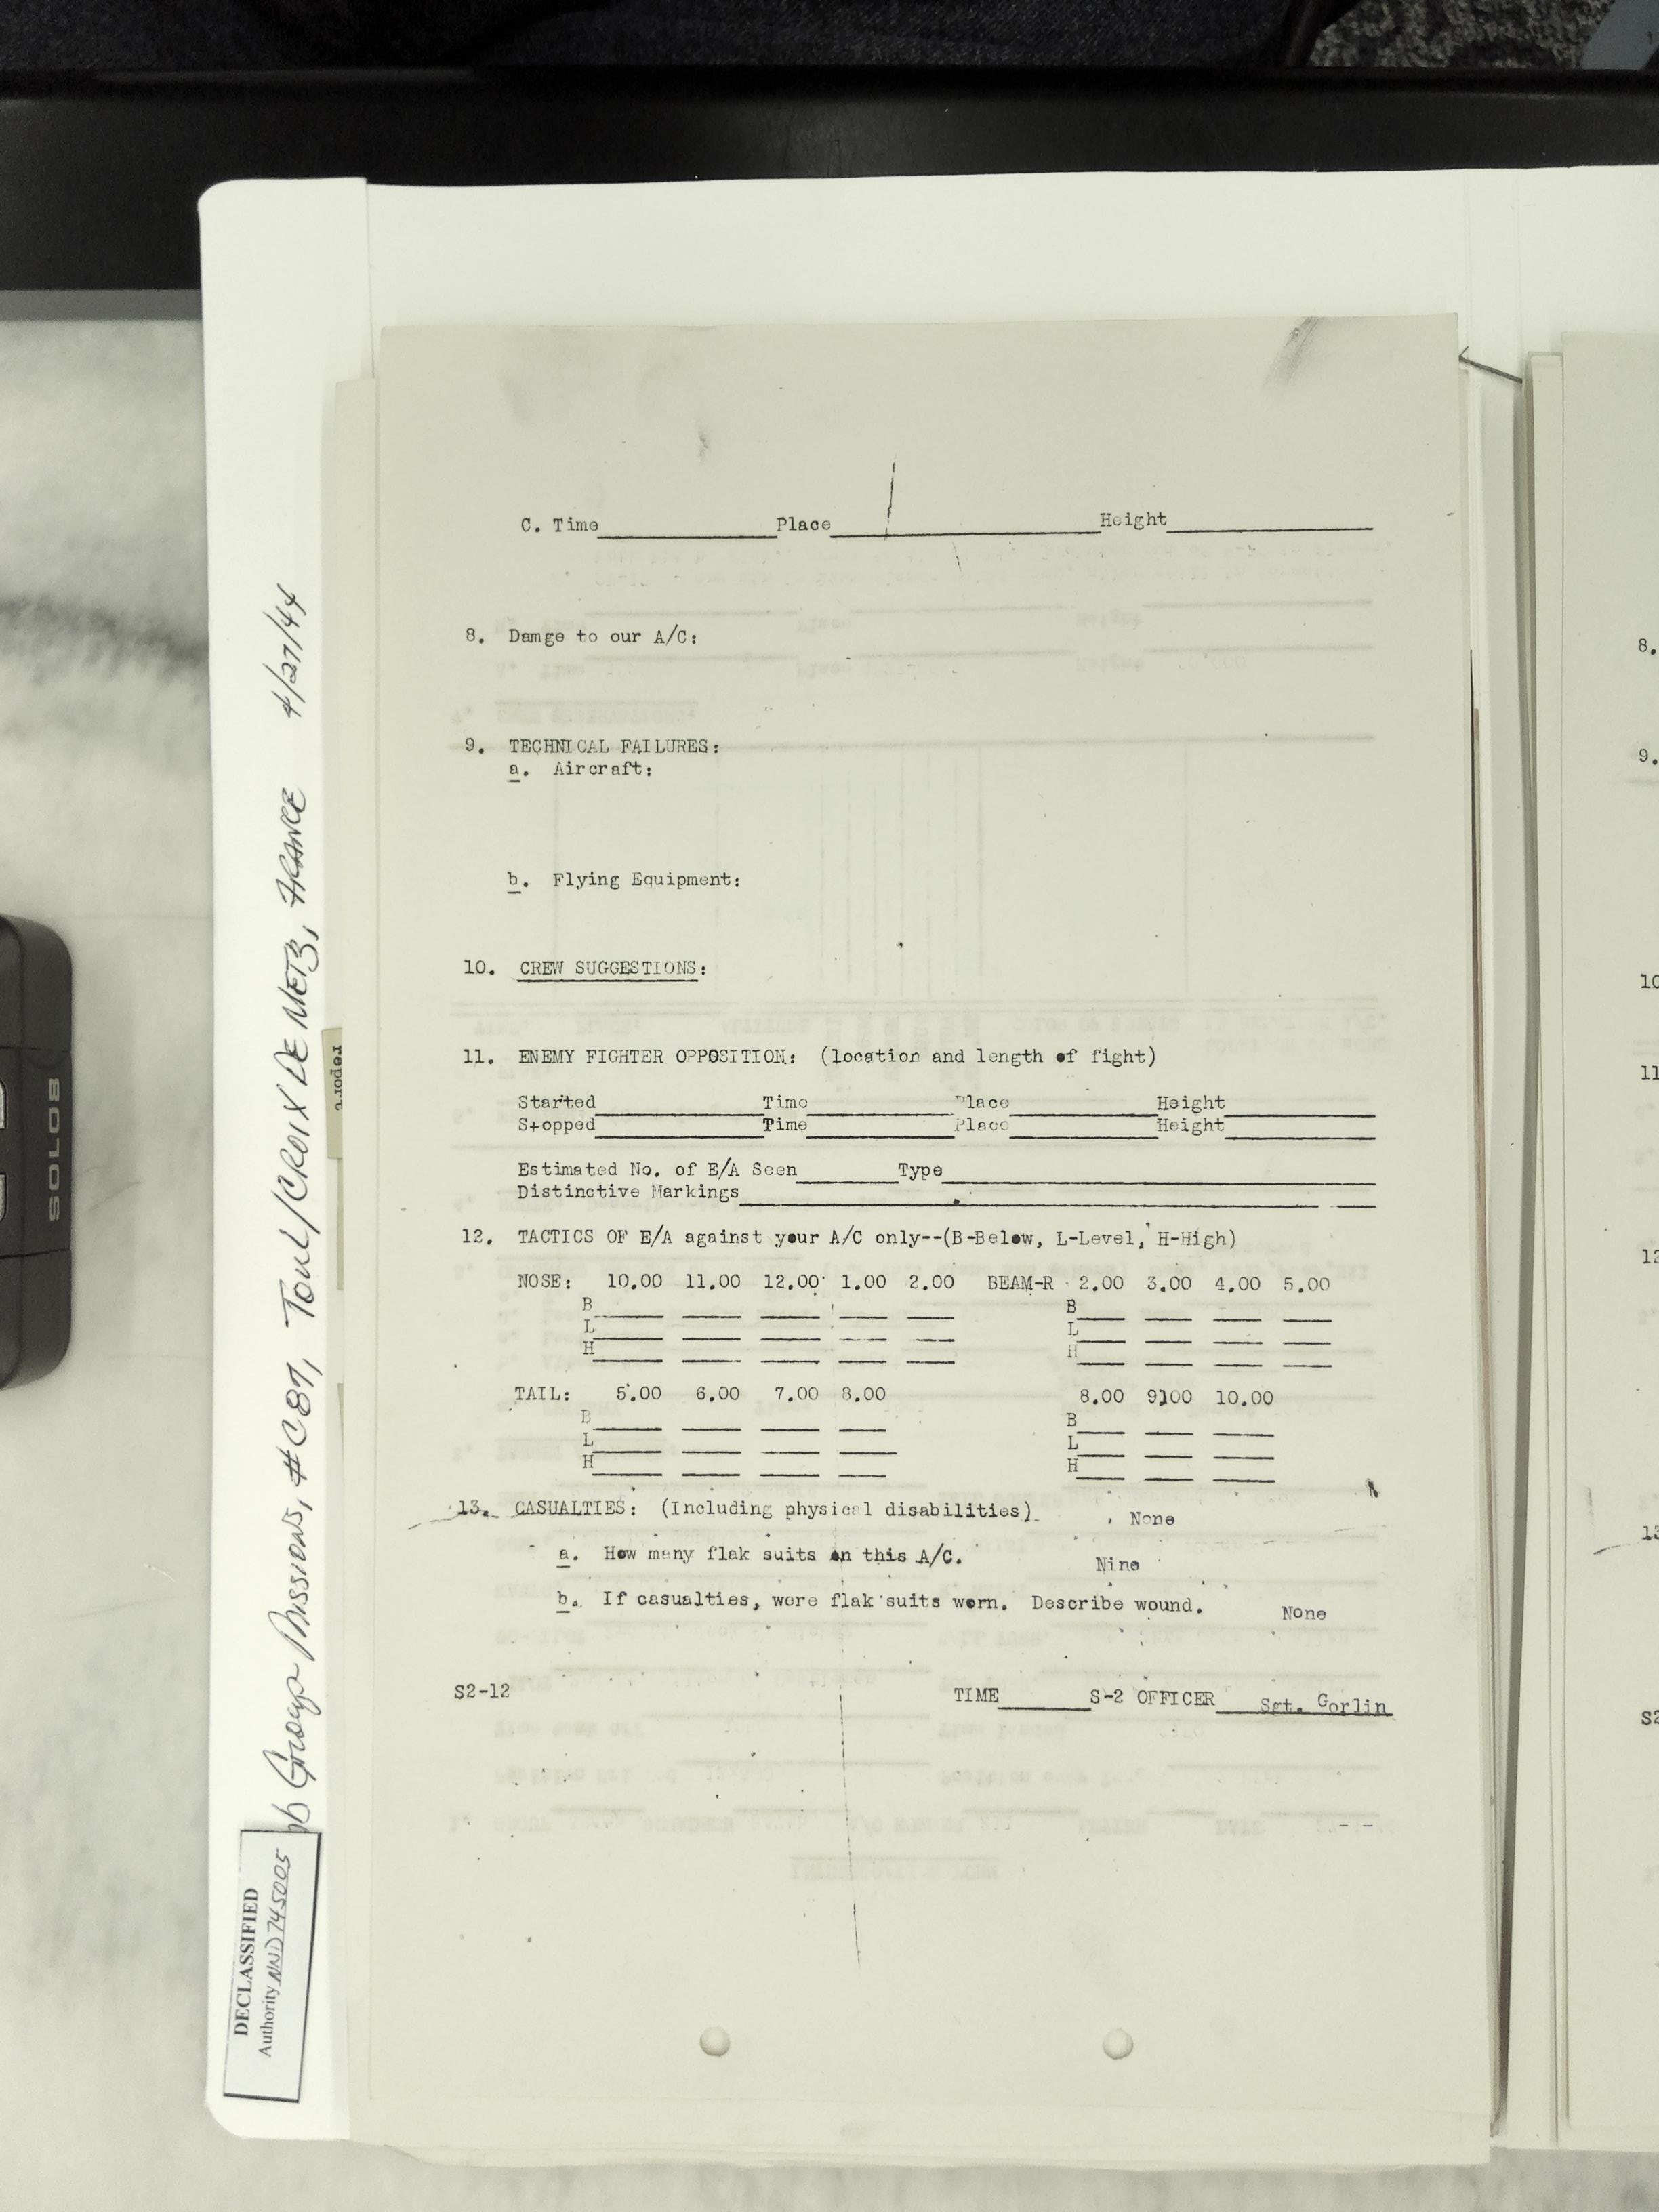 C. Time Place Height
8. Damge to our A/C:
9. TECHNICAL FAILURES:
a. Aircraft:
b. Flying Equipment:
10. CREW SUGGESTIONS:
11. ENEMY FIGHTER OPPOSITION: (location and length of fight)
Started Time Place Height
Stopped Time Place Height
Estimated No. of E/A Seen Type
Distinctive Markings
12. TACTICS OF E/A against your A/C only--(B-Below, L-Level, H-High)
NOSE: 10.00 11.00 12.00 1.00 2.00 BEAM-R 2.00 3.00 4.00 5.00
B B
L L
H H
TAIL: 5.00 6.00 7.00 8.00 8.00 9.00 10.00
B B
L L
H H
13. CASUALTIES: (Including physical disabilities) None
a. How many flak suits on this A/C. Nine
b. If casualties, were flak suits worn. Describe wound. None
S2-12 TIME S-2 OFFICER Sgt. Gorlin
Group Missions, #C87, Toul/CROIX DE METZ, FRANCE 4/27/44
DECLASSIFIED
Authority NND745005
report
SOLO8
8.
9.
10
11
12
13
S2